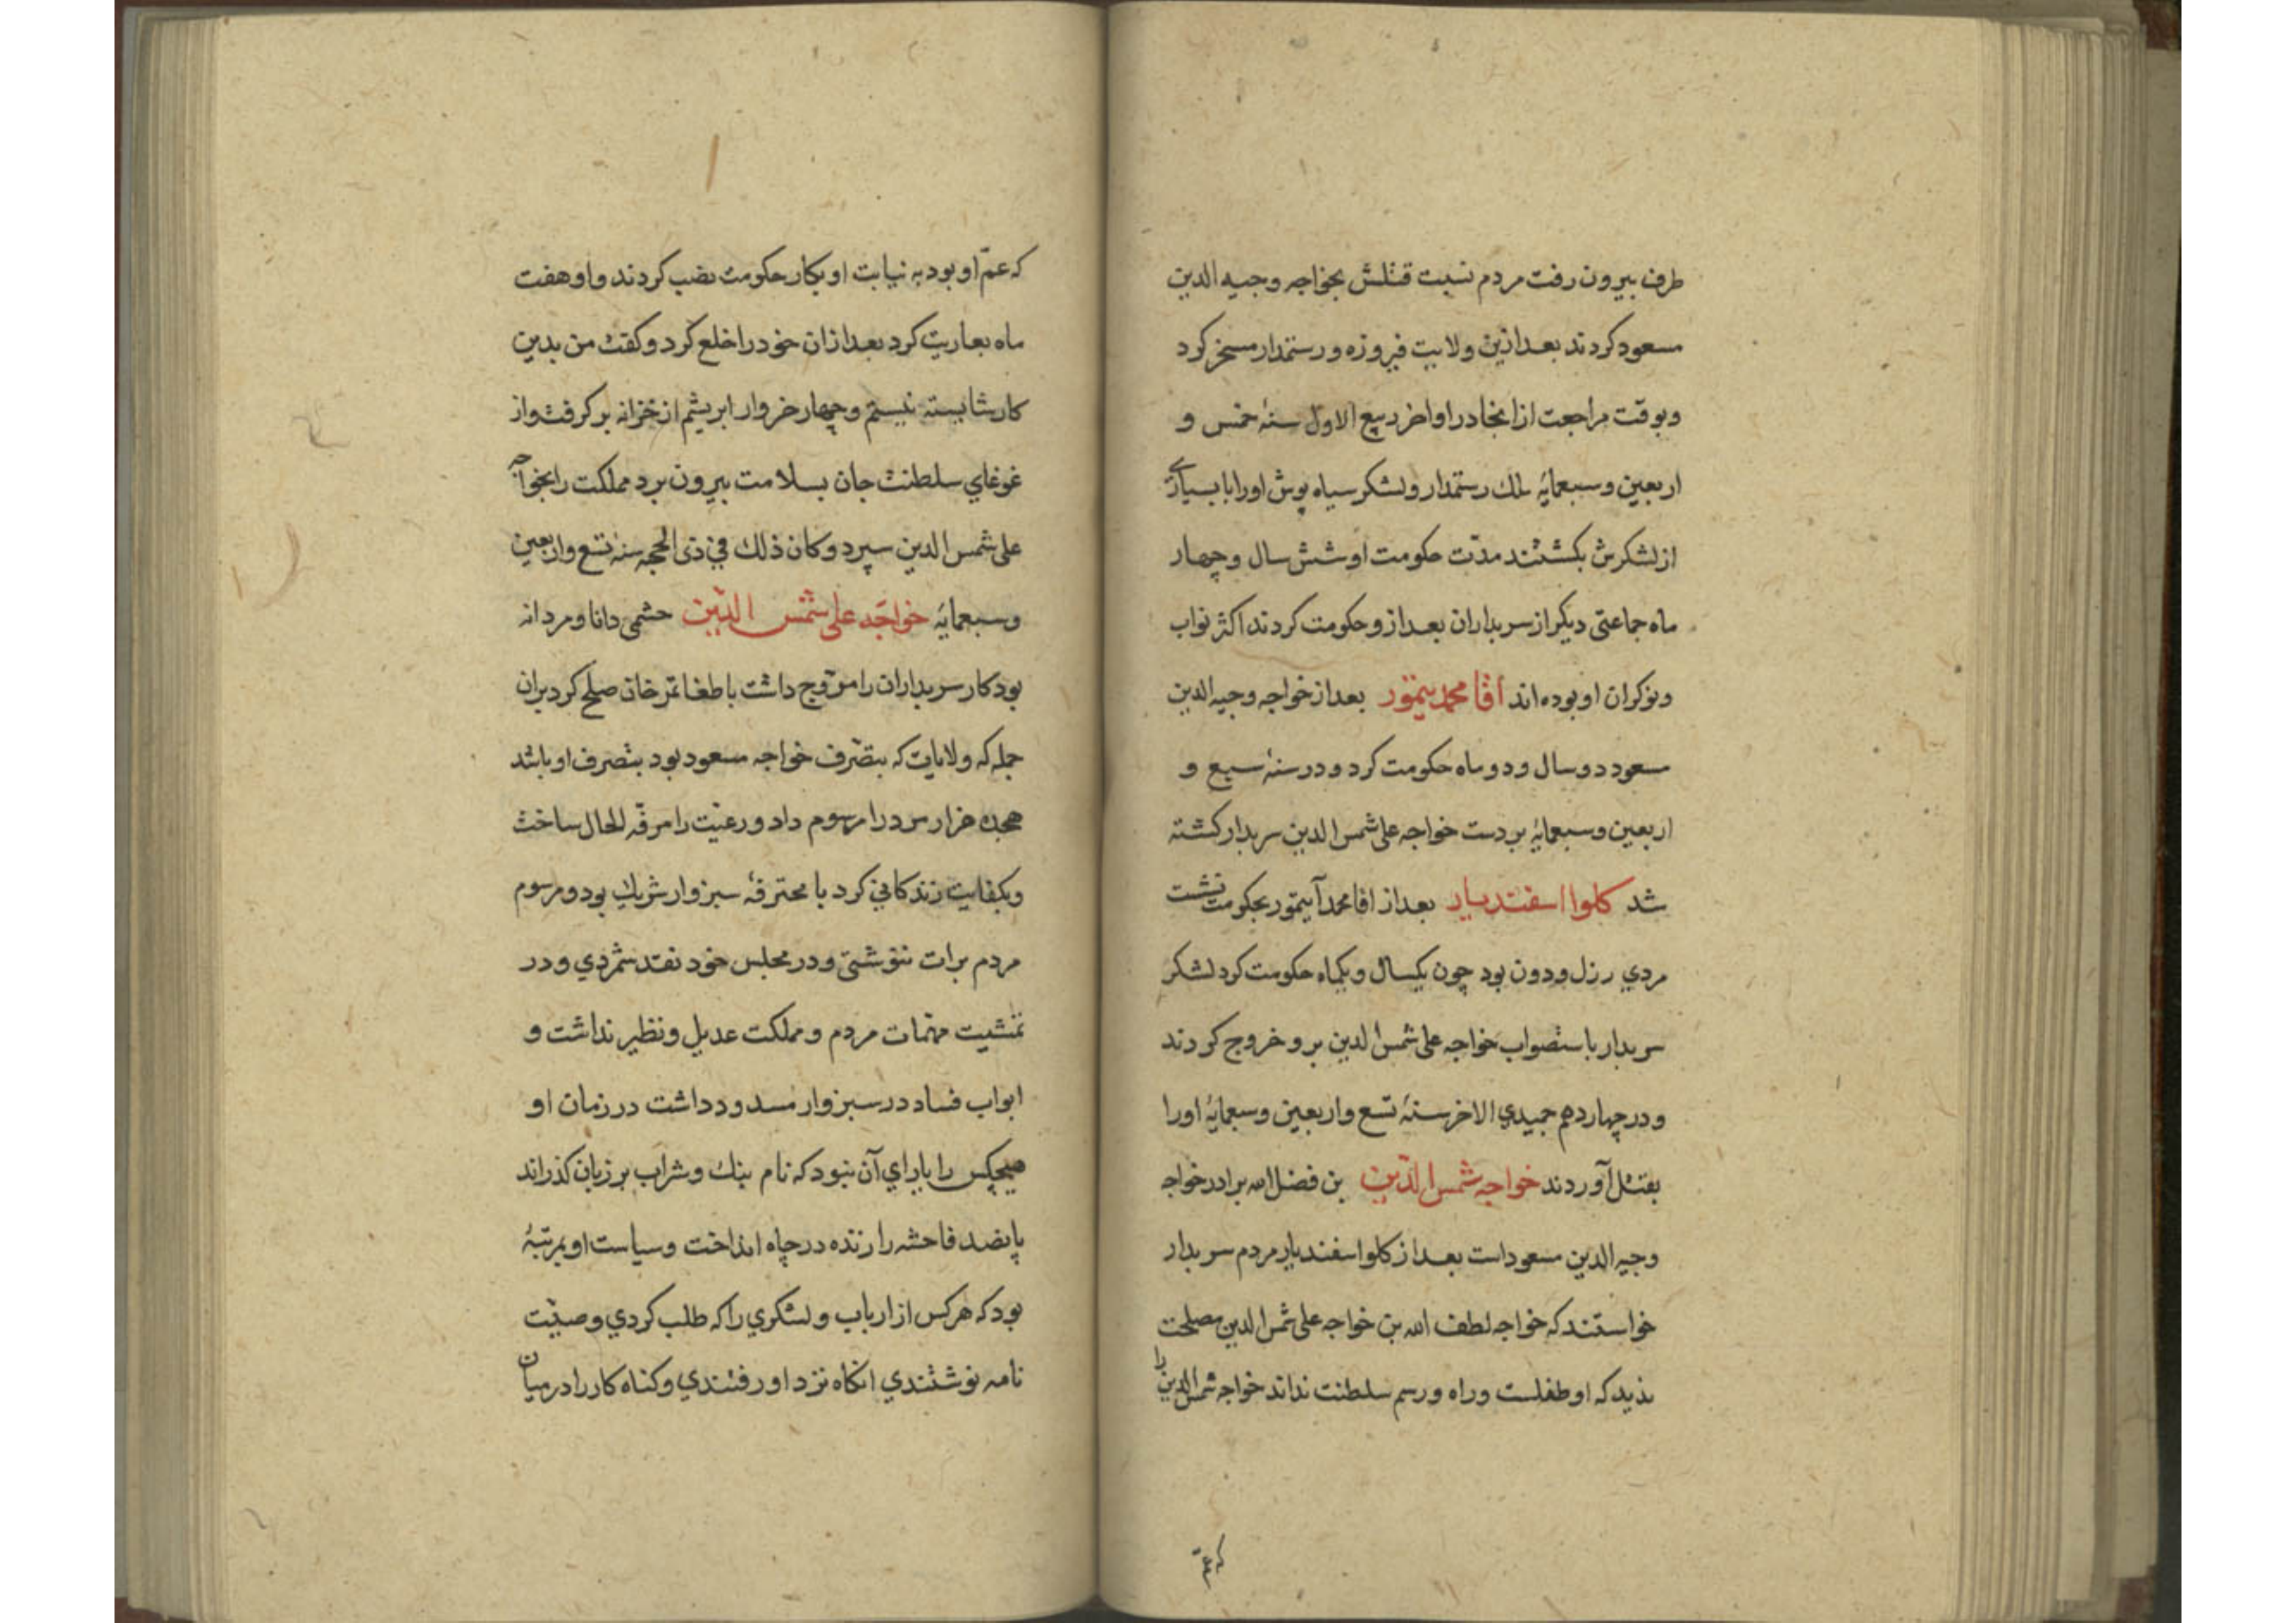 طرف بیرون رفت مردم نسبت قتلش بخواجه وجیه الدین
مسعود کردند بعد ازین ولایت فیروزه و رستمدار مسخر کرد
وبوقت مراجعت از انجا در اواخر ربیع الاول سنهٔ خمس و
اربعین وسبعمایهٔ ملك رستمدار ولشکر سیاه پوش اورا با بسیاری
از لشکرش بکشتند مدّت حکومت او شش سال و چهار
ماه جماعتی دیکر از سربداران بعد ازو حکومت کردند اکثر نواب
ونوکران او بوده اند آقا محمد یتمور بعد از خواجه وجیه الدین
مسعود دو سال و دو ماه حکومت کرد و در سنهٔ سبع و
اربعین وسبعمایهٔ بر دست خواجه علی شمس الدین سربدار کشته
شد کلوا اسفندیار بعد از اقا محمد آیتمور بحکومت نشست
مردي رزل ودون بود چون یکسال و یکماه حکومت کرد لشکر
سربدار باستصواب خواجه علی شمس الدین برو خروج کردند
ودر چهاردهم جمیدي الاخر سنهٔ تسع واربعین وسبعمایهٔ اورا
بقتل آوردند خواجه شمس الدّین بن فضل الله برادر خواجه
وجیه الدین مسعود است بعد از کلوا سفندیار مردم سربدار
خواستند که خواجه لطف الله بن خواجه علی شمس الدین مصلحت
ندید که او طفلست وراه ورسم سلطنت نداند خواجه شمس الدین را
که عمّ او بود به نیابت او بکار حکومت نصب کردند واو هفت
ماه بعاریت کرد بعد ازان خود را خلع کرد وکفت من بدین
کار شایسته نیستم وچهار خروار ابریشم از خزانه بر کرفت واز
غوغاي سلطنت جان بسلامت بیرون برد مملکت را بخواجه
علی شمس الدین سپرد وکان ذلك في ذی الحجه سنهٔ تسع واربعین
وسبعمایهٔ خواجه علی شمس الدّین حشمی دانا ومردانه
بود کار سربداران را مروّج داشت با طغا تمر خان صلح کرد بران
جمله که ولایات که بتصّرف خواجه مسعود بود بتصرف او باشد
هجده هزار مرد را مرسوم داد ورعیّت را مرفّه الحال ساخت
وبکفایت زندکاني کرد با محترفهٔ سبزوار شریك بود ومرسوم
مردم برات ننوشتی ودر مجلس خود نقد شمردي ودر
تمشیت مهمّات مردم ومملکت عدیل ونظیر نداشت و
ابواب فساد در سبزوار مسدود داشت در زمان او
هیچکس را یاراي آن نبود که نام بنك وشراب بر زبان کذراند
پانصد فاحشه را زنده در چاه انداخت وسیاست او بمرتبهٔ
بود که هرکس از ارباب ولشکري را که طلب کردي وصیّت
نامه نوشتندي انکاه نزد او رفتندي وکناه کار را در میان